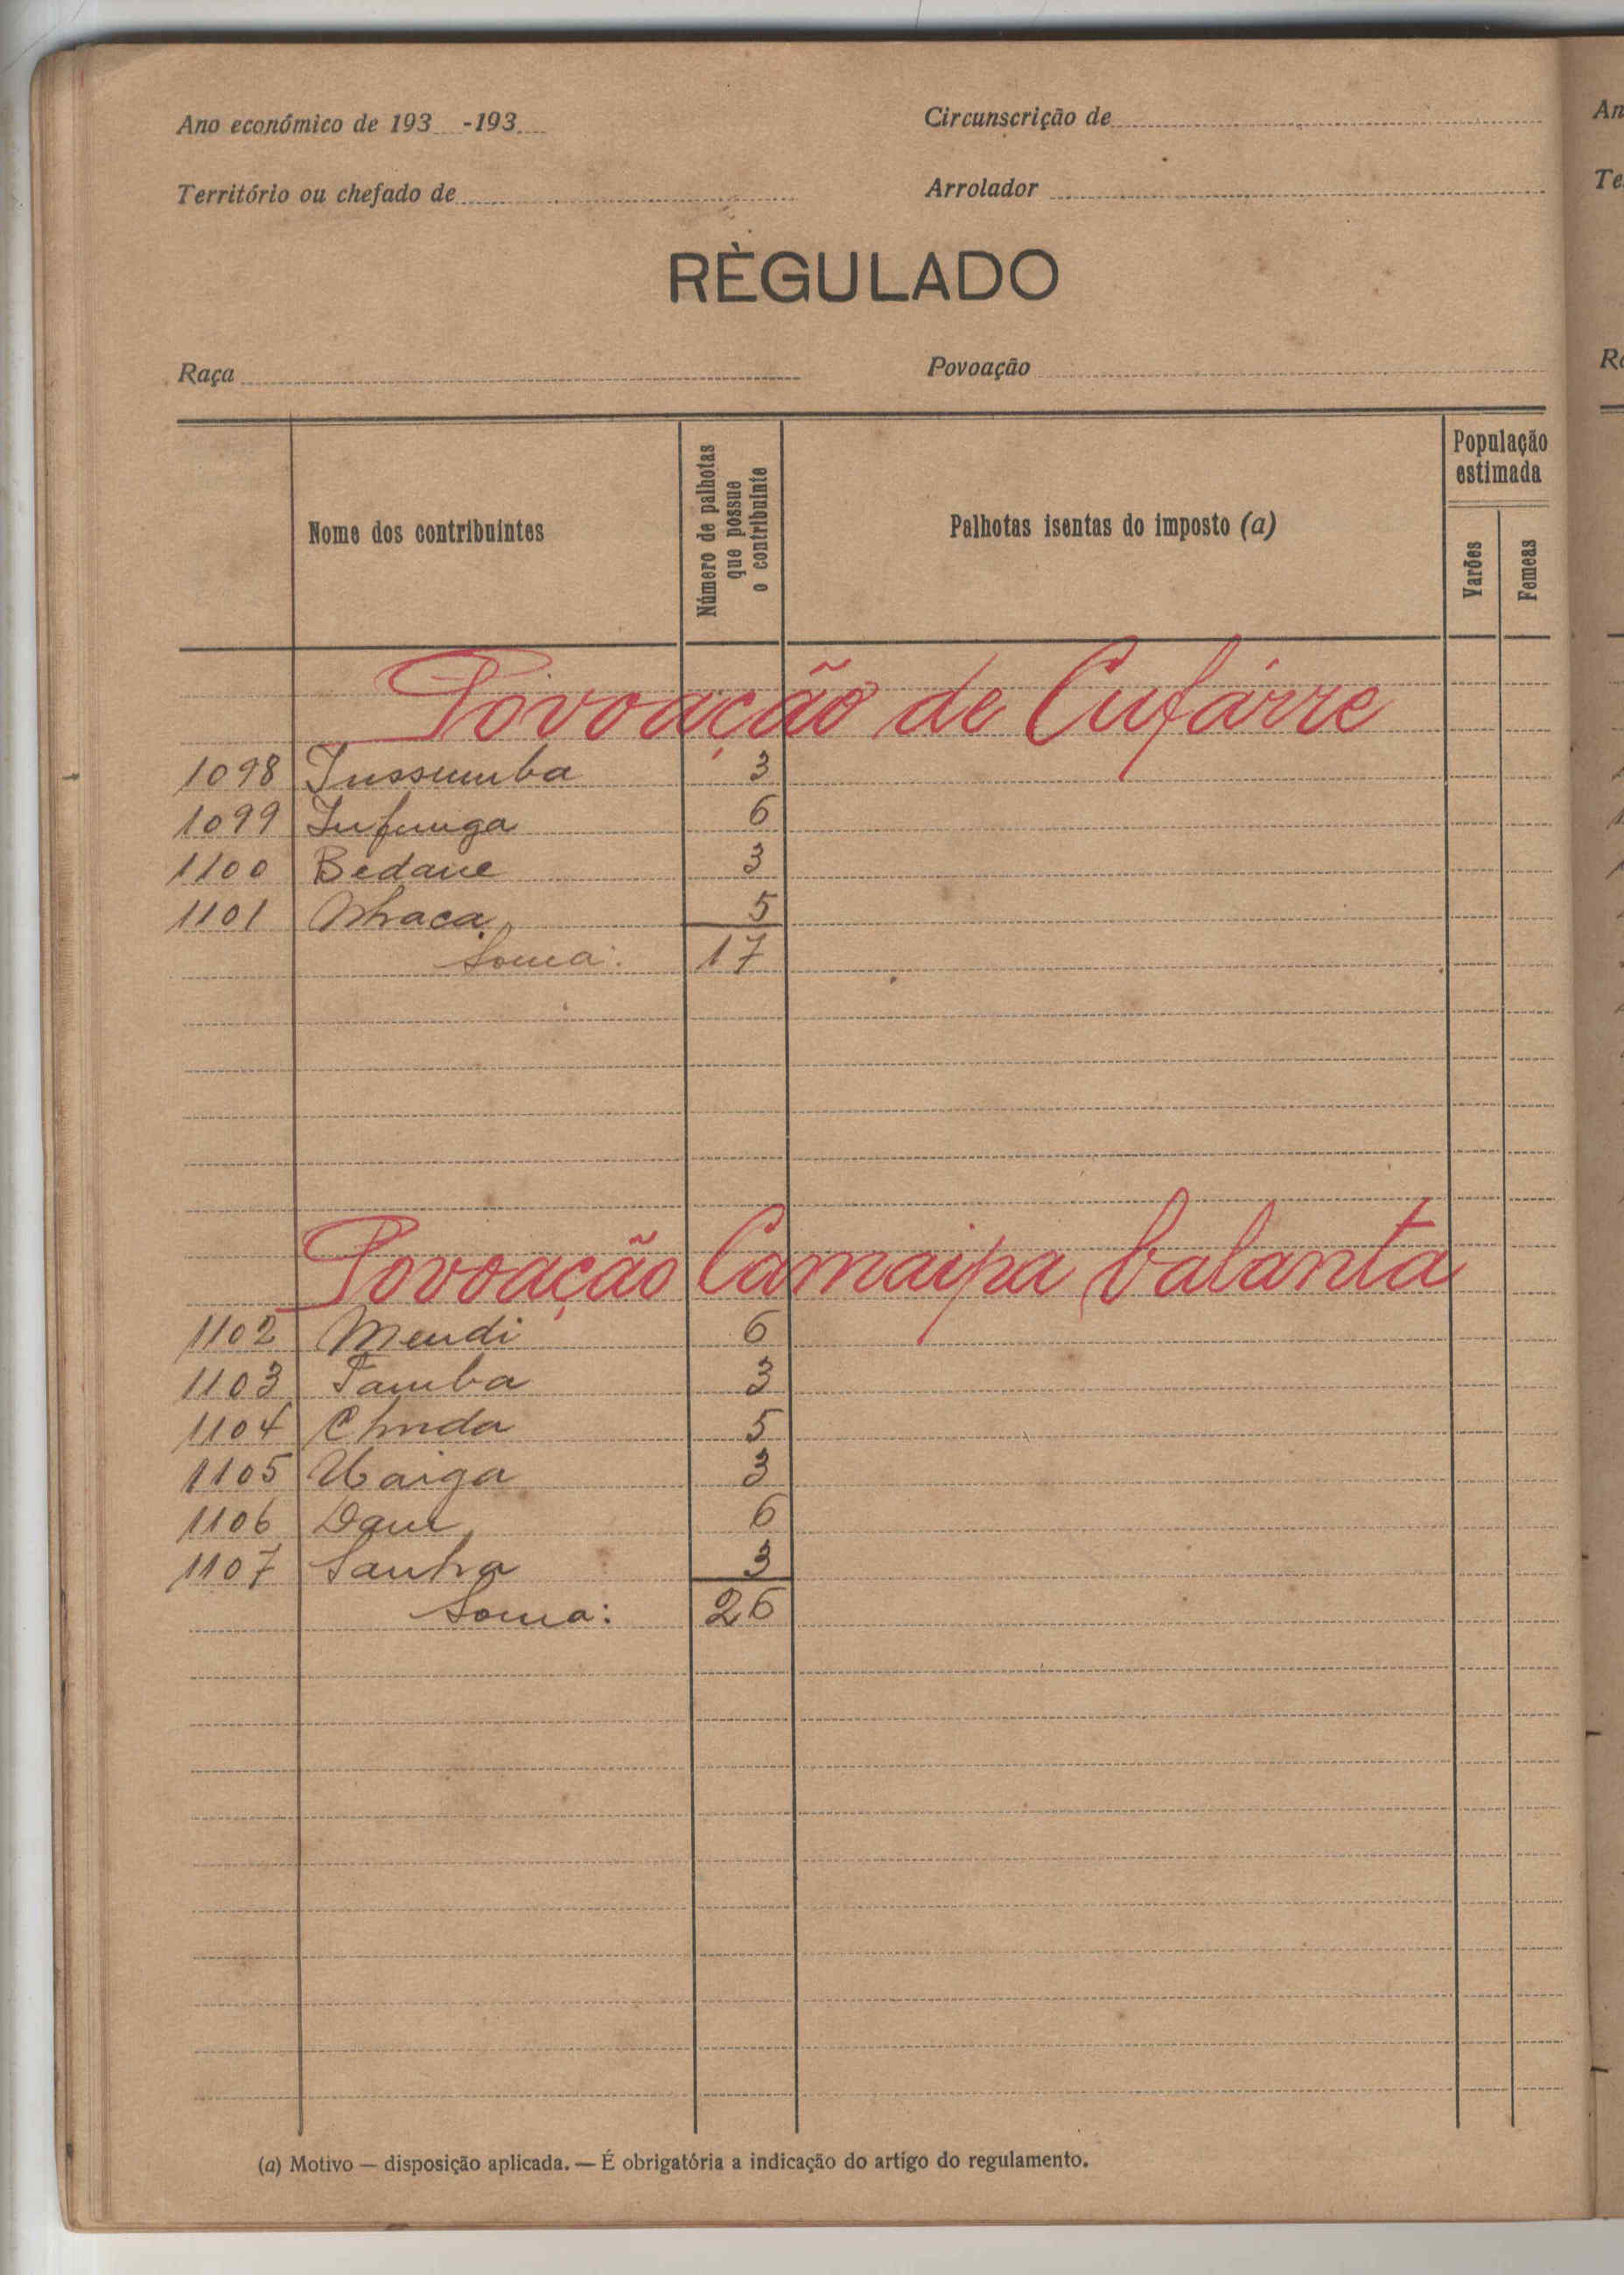 Ano económico de 193 -193
Circunscrição de
Território ou chefado de
Arrolador
RÈGULADO
Raça
Povoação
Nome dos contribuintes
Número de palhotas que possue o contribuinte
Palhotas isentas do imposto (a)
População estimada
Varões
Femeas
Povoação de Cufárre
1098 Jussumba 3
1099 Infunga 6
1100 Bedane 3
1101 Nhaca 5
Soma: 17
Povoação Camaipa balanta
1102 Mendi 6
1103 Tamba 3
1104 5
1105 Uaiga 3
1106 6
1107 Sanha 3
Soma: 26
(a) Motivo — disposição aplicada. — É obrigatória a indicação do artigo do regulamento.